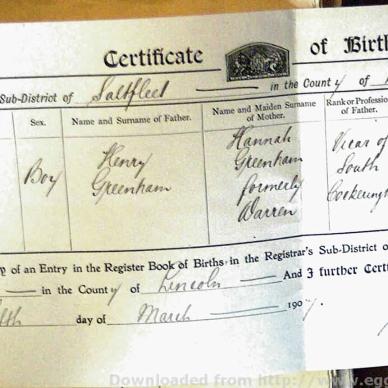 Certificate of Birt
Sub-District of Saltfleet in the County of
Sex. Name and Surname of Father. Name and Maiden Surname of Mother. Rank or Profession of Father.
Boy
Henry
Greenham
Hannah
Greenham
formerly
Warren
Vicar of
South
Cockerington
of an Entry in the Register Book of Births in the Registrar's Sub-District o
in the County of Lincoln And I further Certi
fth day of March 1907.
Downloaded from http://www.ego